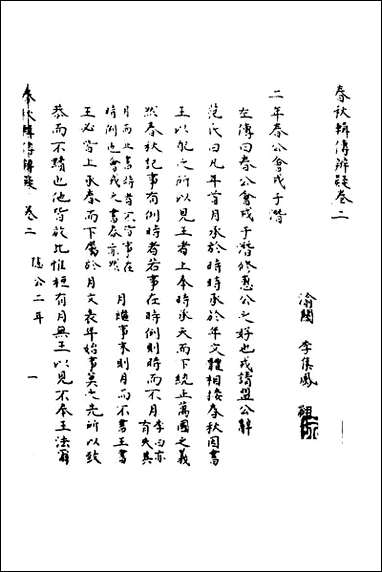 春秋輯傳辨疑卷二
渝關 李集鳳 翽升
二年春公會戎于潛
左傳曰春公會戎于潛修惠公之好也戎請盟公辭
范氏曰凡年首月承於時時承於年文體相接春秋因書
王以配之所以見王者上奉時承天而下統正萬國之義
然春秋記事有例時者若事在時例則時而不月
月繼事末則月而不書王書
王必皆上承春而下屬於月文表年始事莫之先所以致
恭而不黷也他皆放此惟桓有月無王以見不奉王法爾
春秋輯傳辨疑 卷二 隱公二年 一